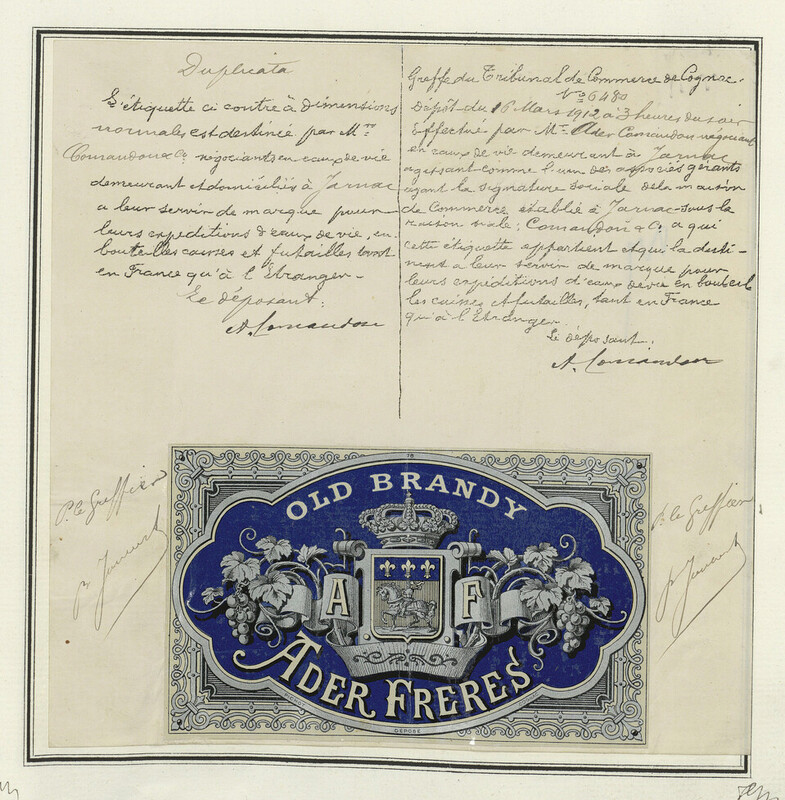 Duplicata
L'étiquette ci contre à dimensions
normales est destinée par M.rs
Comandon & Co. négociants en eaux de vie
demeurant et domiciliés à Jarnac
a leur servir de marque pour
leurs expeditions d'eaux de vie, en
bouteilles caisses et futailles tant
en France qu'à l'Etranger-
Le déposant:
A. Comandon
Greffe du Tribunal de Commerce de Cognac.
No 6480
Dépôt du 16 Mars 1912 à 3 heures du soir
Effectué par Mr. Ader Comandon négociant
en eaux de vie demeurant à Jarnac
agissant comme l'un des associés gérants
ayant la signature sociale de la maison
de Commerce établie à Jarnac sous la
raison sociale: Comandon & Co. a qui
cette étiquette appartient et qui la desti-
nent a leur servir de marque pour
leurs expéditions d'eaux de vie en bouteil
les caisses et futailles, tant en France
qu'à l'Etranger.
Le déposant:
A. Comandon
P. le Greffier
P. le Greffier
78
OLD BRANDY
A F
ADER FRERES
DEPOSÉ